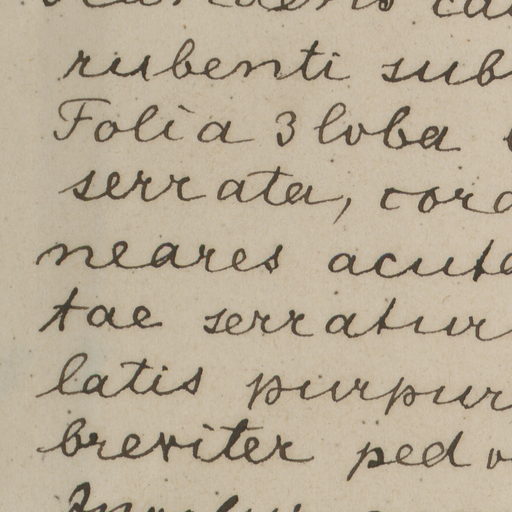 rubenti sub
Folia 3 loba
serrata, cord
neares acuta
tae serratur
latis purpur
breviter ped